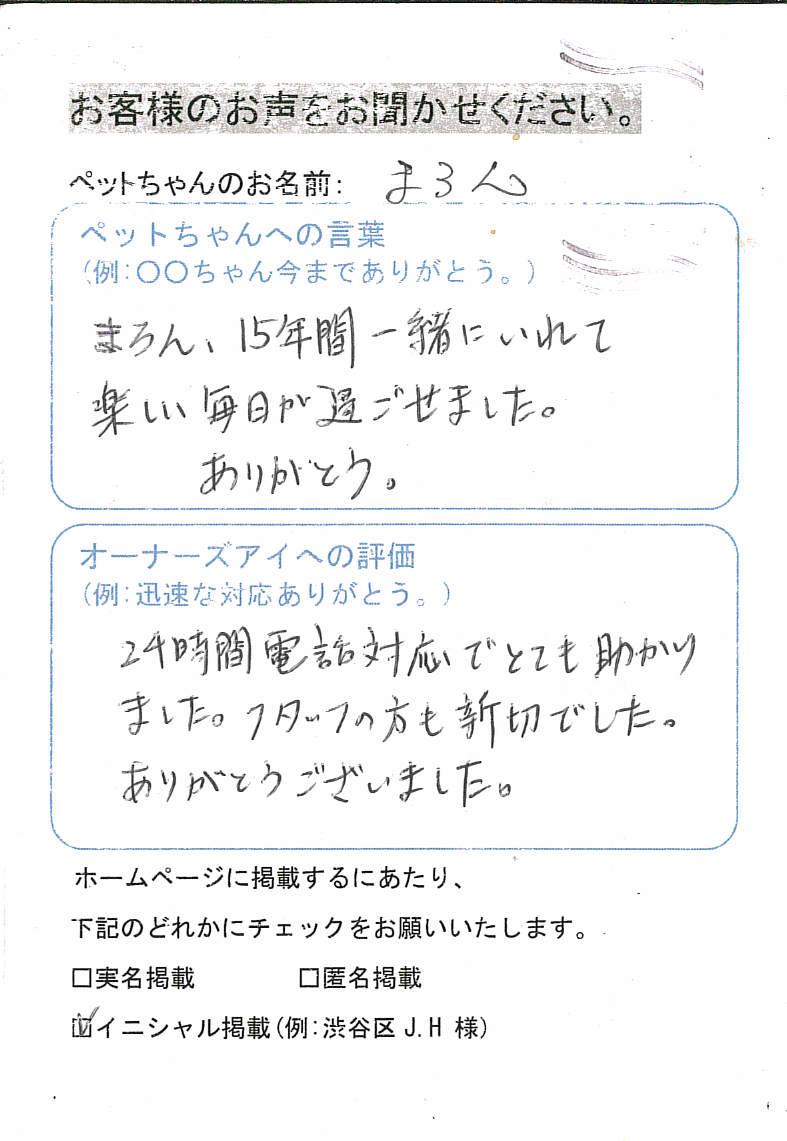 お客様のお声をお聞かせください。
ペットちゃんのお名前: まろん
ペットちゃんへの言葉
(例:〇〇ちゃん今までありがとう。)
まろん、15年間一緒にいれて
楽しい毎日が過ごせました。
ありがとう。
オーナーズアイへの評価
(例:迅速な対応ありがとう。)
24時間電話対応でとても助かり
ました。スタッフの方も新切でした。
ありがとうございました。
ホームページに掲載するにあたり、
下記のどれかにチェックをお願いいたします。
□実名掲載 □匿名掲載
☑イニシャル掲載(例:渋谷区 J.H 様)